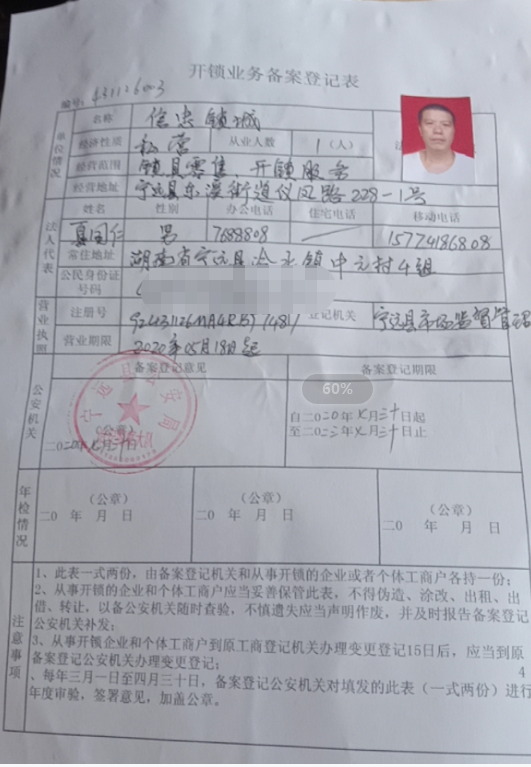 开锁业务备案登记表
编号：431126003
单位情况
名称 信忠锁城
经济性质 私营 从业人数 1（人）
经营范围 锁具零售、开锁服务
经营地址 宁远县东溪街道仪凤路228-1号
法人代表
姓名 性别 办公电话 住宅电话 移动电话
夏国仁 男 7688808 15774186808
常住地址 湖南省宁远县冷水镇中元村4组
公民身份证号码
营业执照
注册号 登记机关 宁远县市场监督管理
营业期限 2020年05月18日起
公安机关
备案登记意见 备案登记期限
60%
宁远县公安局
（公章）
自二0二0年七月三十日起
二0二0年七月三十日
至二0二三年七月三十日止
年检情况
（公章） （公章） （公章）
二0 年 月 日 二0 年 月 日 二0 年 月 日
注意事项
1、此表一式两份，由备案登记机关和从事开锁的企业或者个体工商户各持一份；
2、从事开锁的企业和个体工商户应当妥善保管此表，不得伪造、涂改、出租、出
借、转让，以备公安机关随时查验，不慎遗失应当声明作废，并及时报告备案登记
公安机关补发；
3、从事开锁企业和个体工商户到原工商登记机关办理变更登记15日后，应当到原
备案登记公安机关办理变更登记； 4
、每年三月一日至四月三十日，备案登记公安机关对填发的此表（一式两份）进行
年度审验，签署意见，加盖公章。